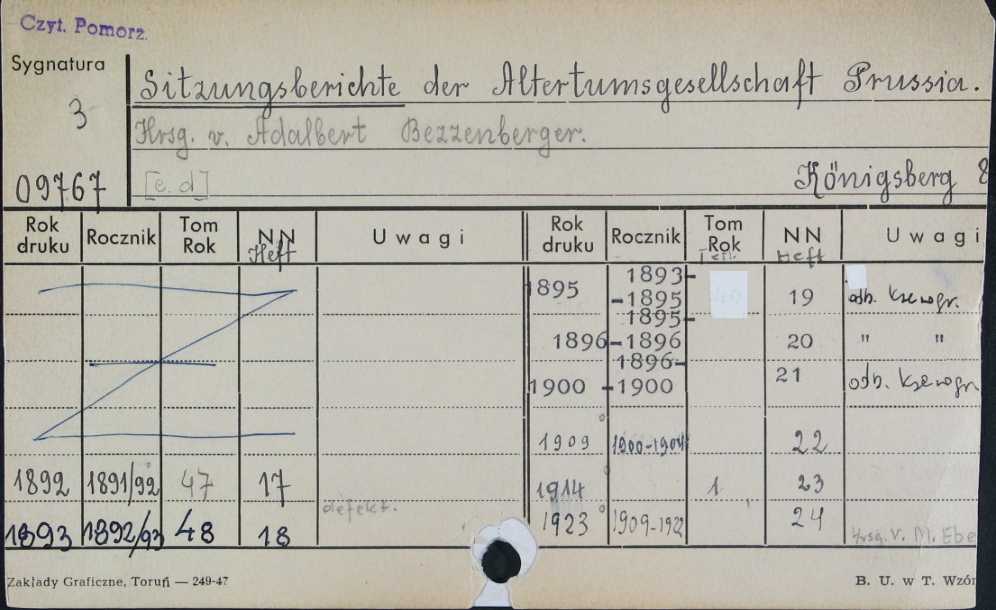 Czyt. Pomorz.
Sygnatura
3
09767
Sitzungsberichte der Altertumsgesellschaft Prussia.
Hrsg. v. Adalbert Bezzenberger.
[e. d]
Königsberg 8
Rok druku Rocznik Tom Rok NN Heft Uwagi Rok druku Rocznik Tom Rok NN Heft Uwagi
1895 1893-1895 19 odb. kserogr.
1896 1895-1896 20 " "
1900 1896-1900 21 odb. kserogr.
1909 1900-1904 22
1892 1891/92 47 17 1914 1 23
1893 1892/93 48 18 defekt. 1923 1909-1922 24 Hrsg. v. M. Ebe
Zakłady Graficzne, Toruń — 249-47 B. U. w T. Wzór